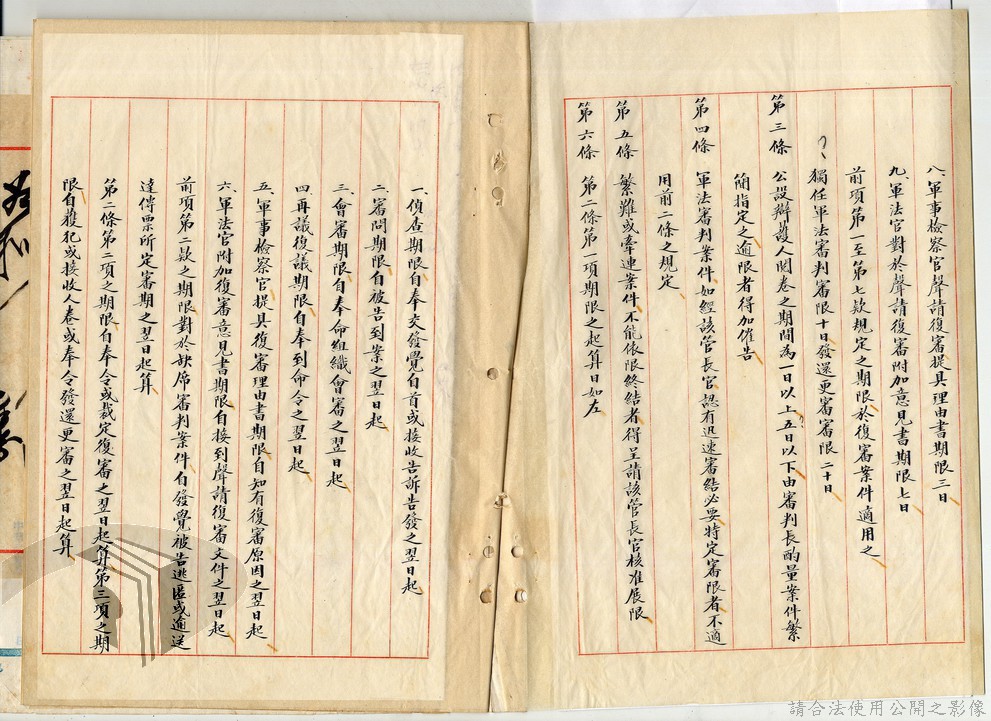 八、軍事檢察官聲請復審提具理由書期限三日
九、軍法官對於聲請復審附加意見書期限七日
前項第一至第七款規定之期限於復審案件適用之
獨任軍法審判審限十日發還更審審限二十日
第三條 公設辯護人閱卷之期間為一日以上五日以下由審判長酌量案件繁
簡指定之逾限者得加催告
第四條 軍法審判案件如經該管長官認有迅速審結必要特定審限者不適
用前二條之規定
第五條 繁難或牽連案件不能依限終結者得呈請該管長官核准展限
第六條 第二條第一項期限之起算日如左
一、偵查期限自奉交發覺自首或接收告訴告發之翌日起
二、審問期限自被告到案之翌日起
三、會審期限自奉命組織會審之翌日起
四、再議復議期限自奉到命令之翌日起
五、軍事檢察官提具復審理由書期限自知有復審原因之翌日起
六、軍法官附加復審意見書期限自接到聲請復審文件之翌日起
前項第二款之期限對於缺席審判案件自發覺被告逃匿或逾送
達傳票所定審期之翌日起算
第二條第二項之期限自奉令或裁定復審之翌日起算第三項之期
限自獲犯或接收人卷或奉令發還更審之翌日起算
請合法使用公開之影像